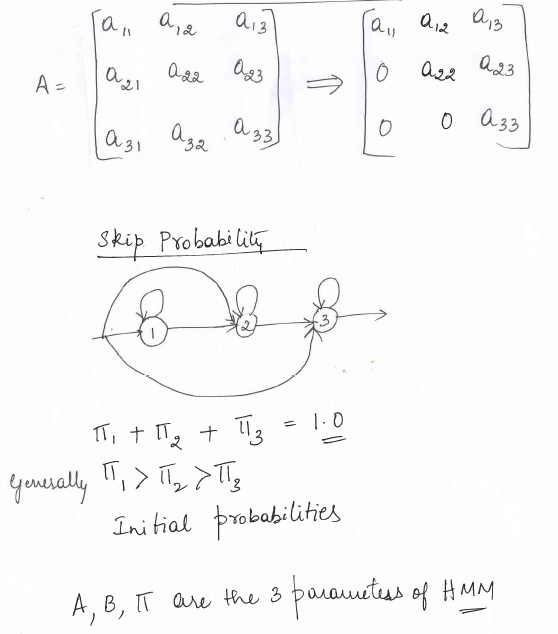 A = [a₁₁ a₁₂ a₁₃ ⟹ [a₁₁ a₁₂ a₁₃
a₂₁ a₂₂ a₂₃ 0 a₂₂ a₂₃
a₃₁ a₃₂ a₃₃] 0 0 a₃₃]
Skip Probability
1 2 3
π₁ + π₂ + π₃ = 1.0
Generally π₁ > π₂ > π₃
Initial probabilities
A, B, π are the 3 parameters of HMM